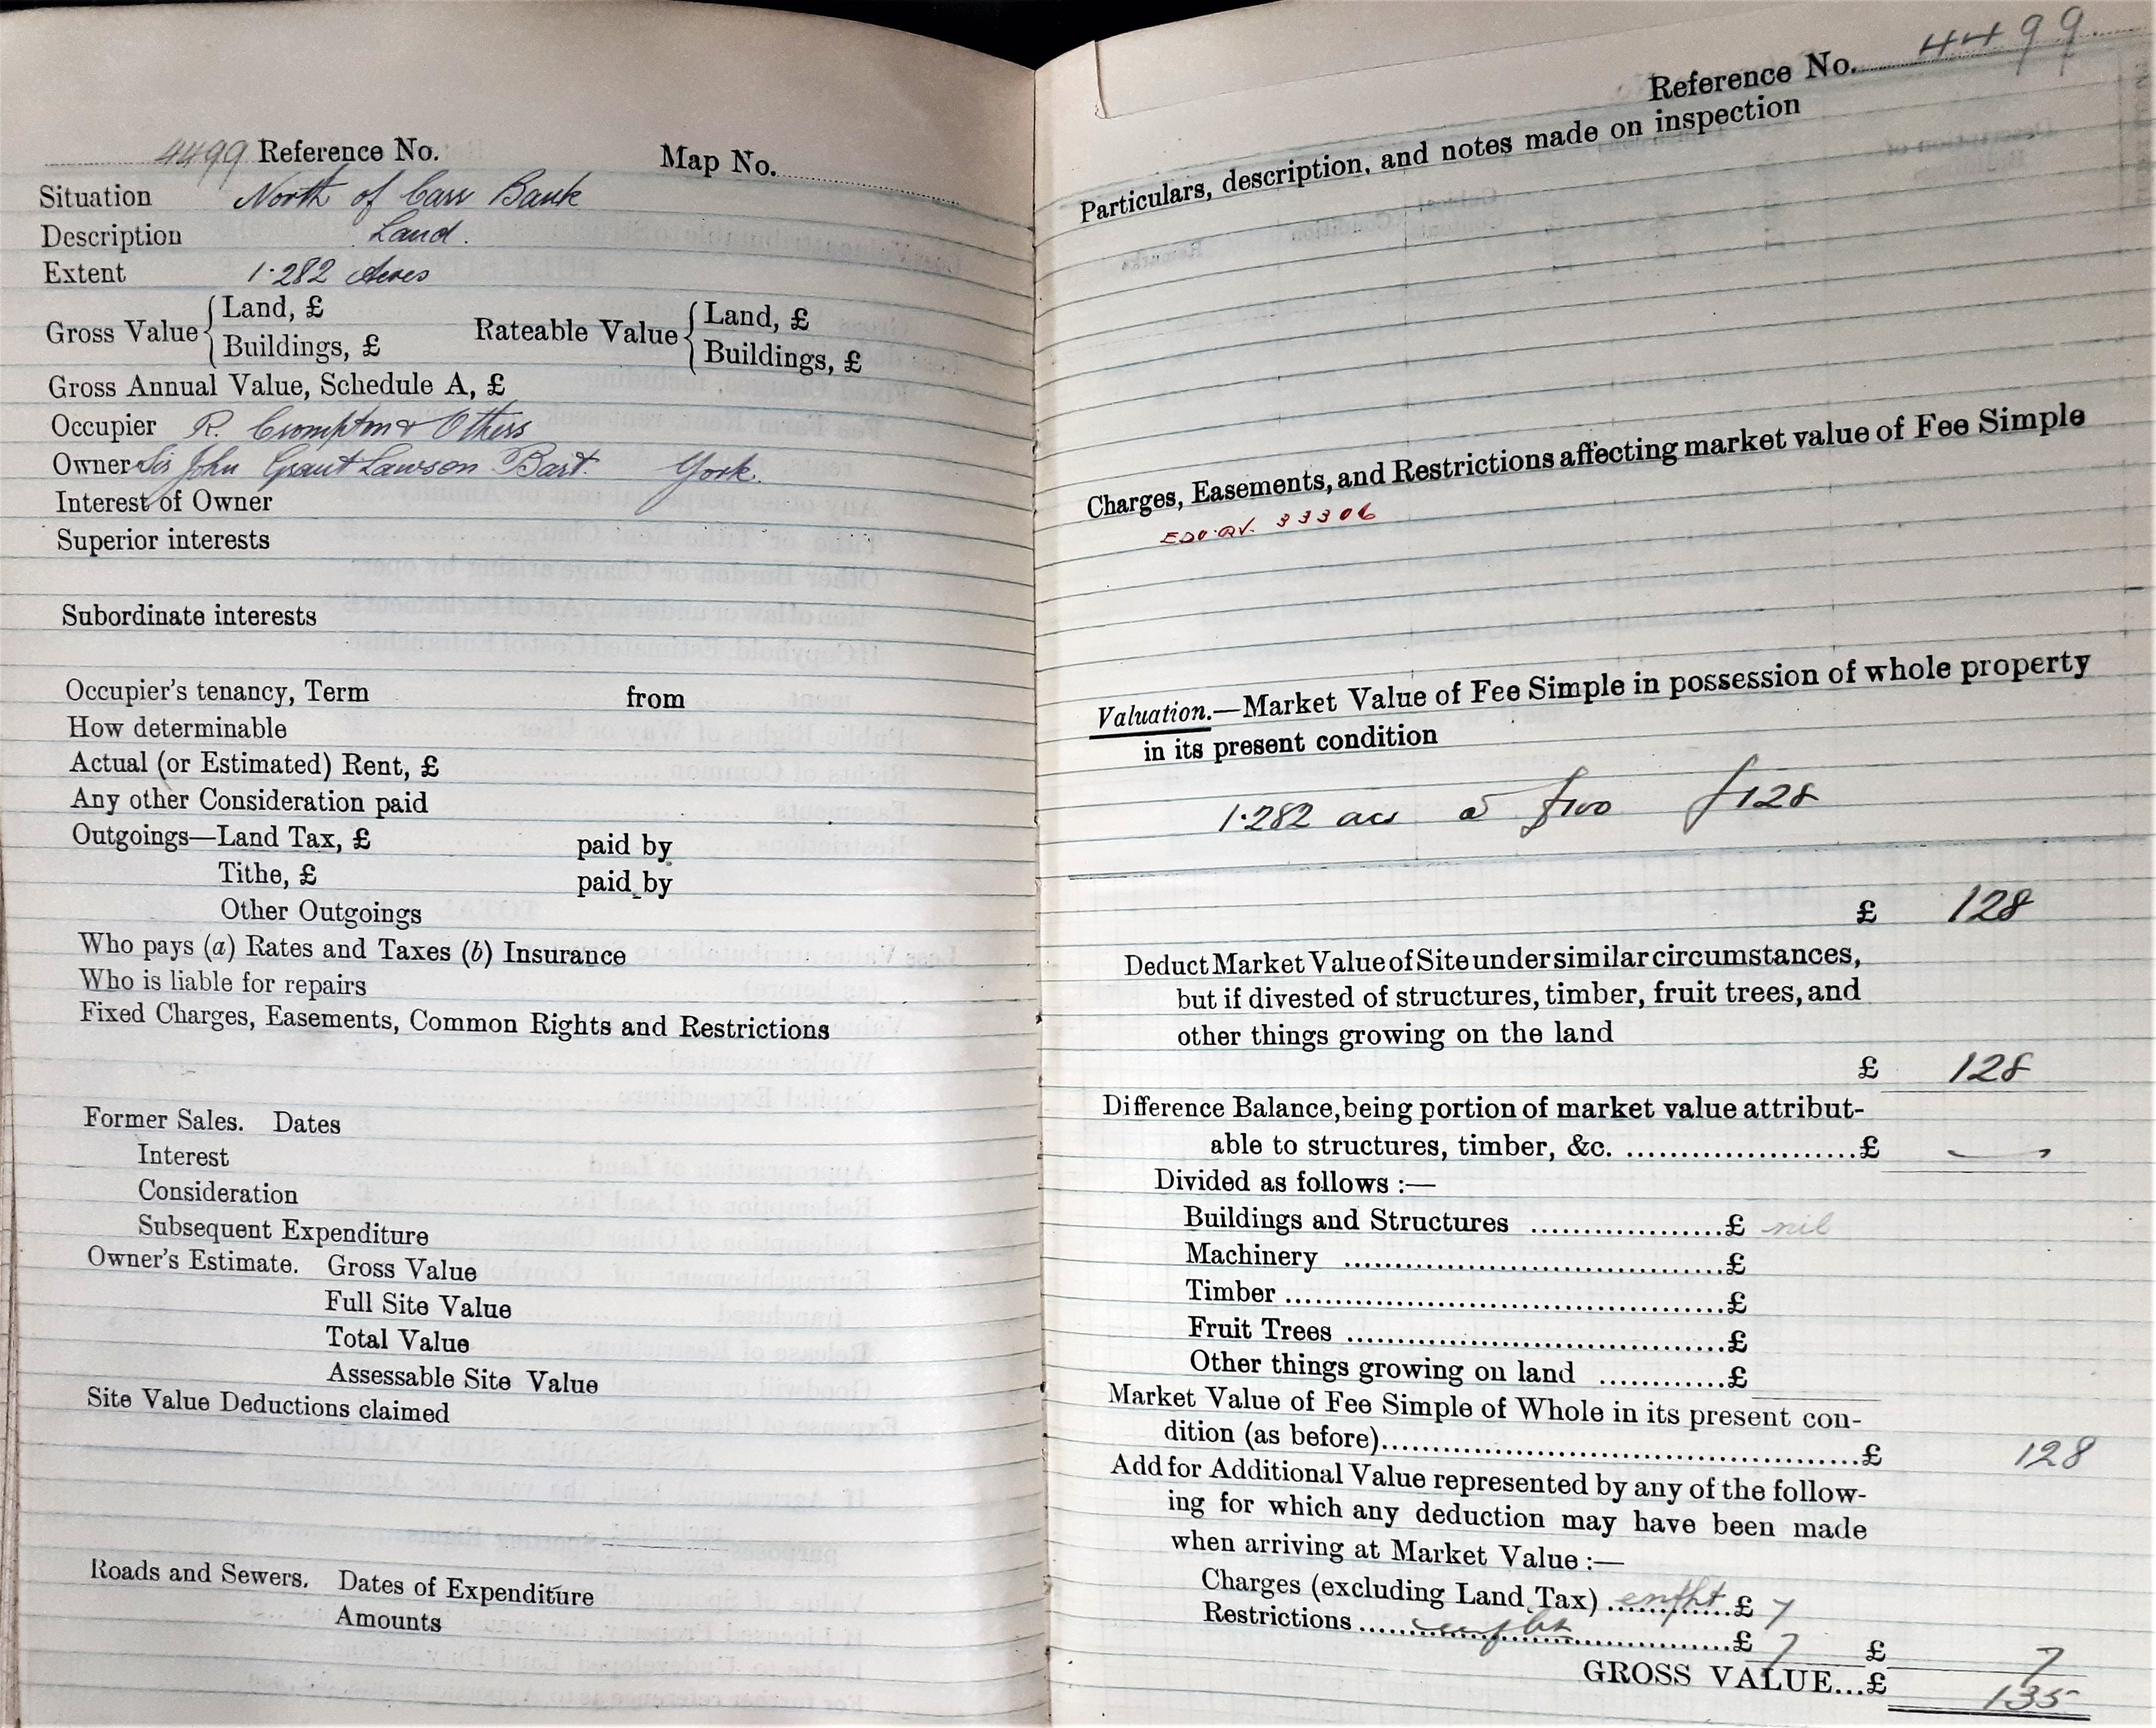 4499 Reference No. Map No.
Situation North of Carr Bank
Description Land.
Extent 1·282 Acres
Gross Value { Land, £ Rateable Value { Land, £
Buildings, £ Buildings, £
Gross Annual Value, Schedule A, £
Occupier R. Crompton & Others
Owner Sir John Grant Lawson Bart. York.
Interest of Owner
Superior interests
Subordinate interests
Occupier's tenancy, Term from
How determinable
Actual (or Estimated) Rent, £
Any other Consideration paid
Outgoings—Land Tax, £ paid by
Tithe, £ paid by
Other Outgoings
Who pays (a) Rates and Taxes (b) Insurance
Who is liable for repairs
Fixed Charges, Easements, Common Rights and Restrictions
Former Sales. Dates
Interest
Consideration
Subsequent Expenditure
Owner's Estimate. Gross Value
Full Site Value
Total Value
Assessable Site Value
Site Value Deductions claimed
Roads and Sewers. Dates of Expenditure
Amounts
Reference No. 4499
Particulars, description, and notes made on inspection
Charges, Easements, and Restrictions affecting market value of Fee Simple
33306
Valuation.—Market Value of Fee Simple in possession of whole property
in its present condition
1·282 acs @ £100 £128
£ 128
Deduct Market Value of Site under similar circumstances,
but if divested of structures, timber, fruit trees, and
other things growing on the land
£ 128
Difference Balance, being portion of market value attribut-
able to structures, timber, &c. £ —
Divided as follows :—
Buildings and Structures £ nil
Machinery £
Timber £
Fruit Trees £
Other things growing on land £
Market Value of Fee Simple of Whole in its present con-
dition (as before) £ 128
Add for Additional Value represented by any of the follow-
ing for which any deduction may have been made
when arriving at Market Value :—
Charges (excluding Land Tax) £ 7
Restrictions £ 7 £ 7
GROSS VALUE...£ 135